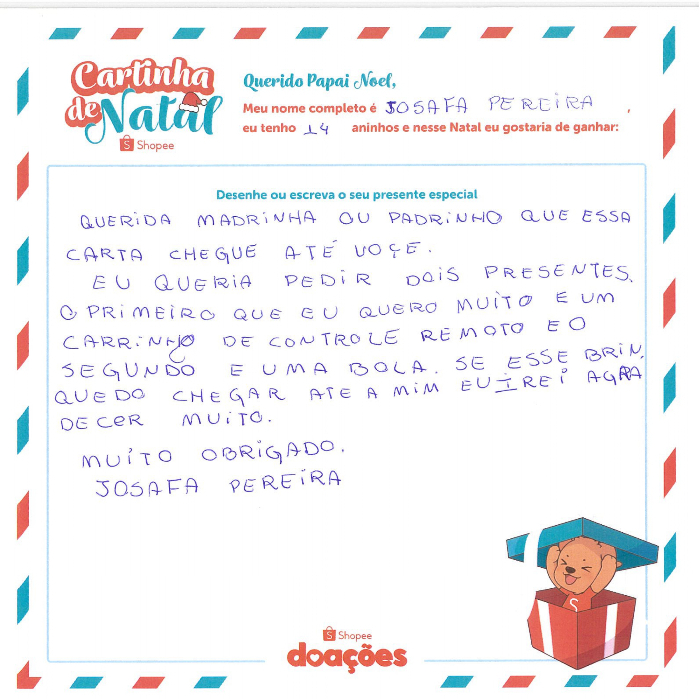 Cartinha
de Natal
Shopee
Querido Papai Noel,
Meu nome completo é JOSAFA PEREIRA,
eu tenho 14 aninhos e nesse Natal eu gostaria de ganhar:
Desenhe ou escreva o seu presente especial
QUERIDA MADRINHA OU PADRINHO QUE ESSA
CARTA CHEGUE ATÉ VOÇE.
EU QUERIA PEDIR DOIS PRESENTES.
O PRIMEIRO QUE EU QUERO MUITO E UM
CARRINHO DE CONTROLE REMOTO E O
SEGUNDO E UMA BOLA. SE ESSE BRIN.
QUEDO CHEGAR ATE A MIM EU IREI AGRA
DECER MUITO.
MUITO OBRIGADO.
JOSAFA PEREIRA
Shopee
doações